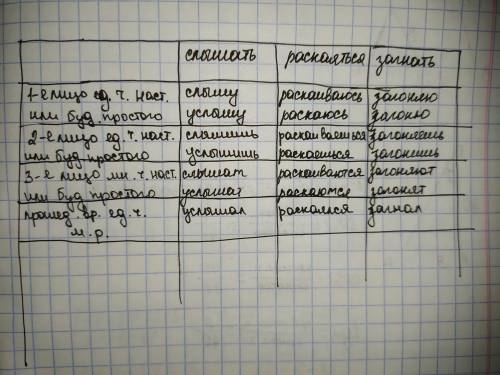 слышать раскаяться загнать
1-е лицо ед. ч. наст. слышу раскаиваюсь загоняю
или буд. простого услышу раскаюсь загоню
2-е лицо ед. ч. наст. слышишь раскаиваешься загоняешь
или буд. простого услышишь раскаешься загонишь
3-е лицо мн. ч. наст. слышат раскаиваются загоняют
или буд. простого услышат раскаются загонят
прошед. вр. ед. ч. услышал раскаялся загнал
м. р.